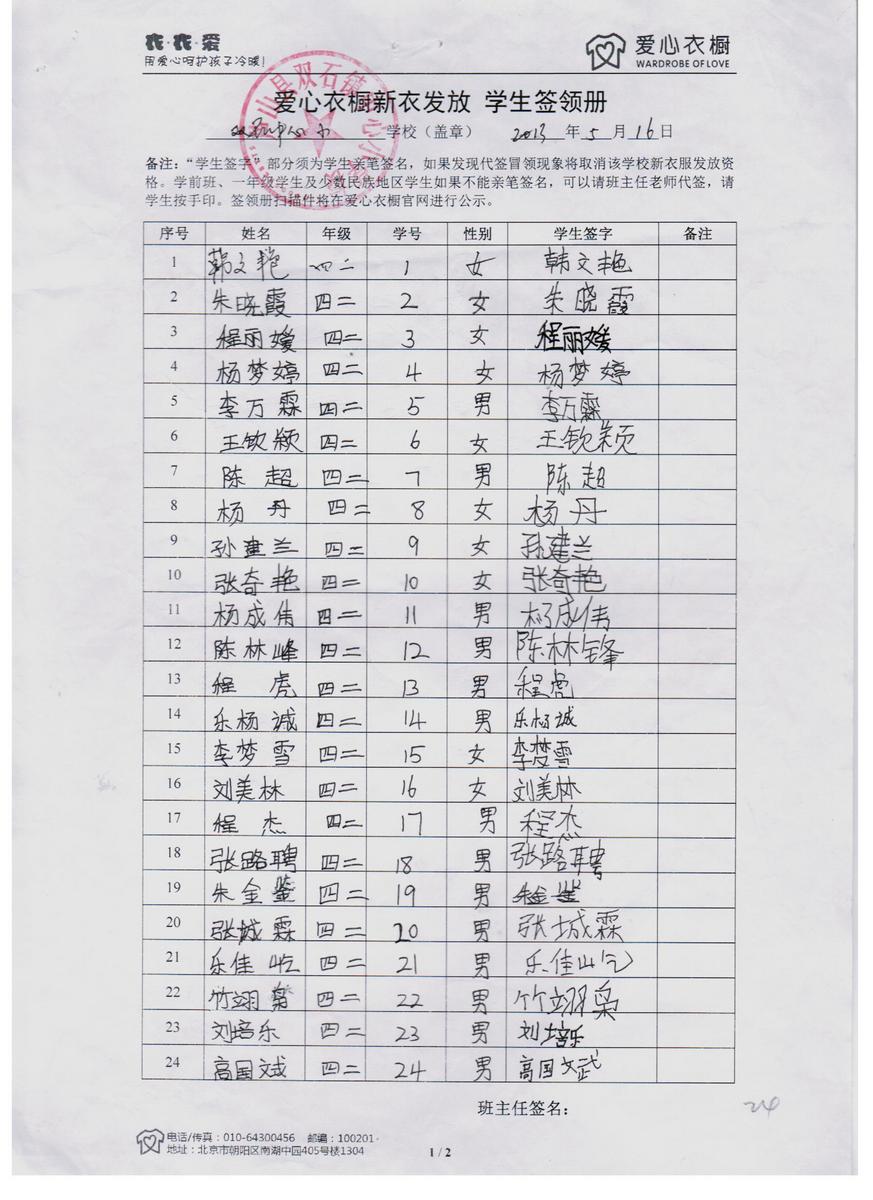 衣·衣·爱
用爱心呵护孩子冷暖!
爱心衣橱
WARDROBE OF LOVE
爱心衣橱新衣发放 学生签领册
双石中心小 学校（盖章） 2013 年 5 月 16 日
备注：“学生签字”部分须为学生亲笔签名，如果发现代签冒领现象将取消该学校新衣服发放资
格。学前班、一年级学生及少数民族地区学生如果不能亲笔签名，可以请班主任老师代签，请
学生按手印。签领册扫描件将在爱心衣橱官网进行公示。
序号 姓名 年级 学号 性别 学生签字 备注
1 韩文艳 四二 1 女 韩文艳
2 朱晓霞 四二 2 女 朱晓霞
3 程丽媛 四二 3 女 程丽媛
4 杨梦婷 四二 4 女 杨梦婷
5 李万霖 四二 5 男 李万霖
6 王钦颖 四二 6 女 王钦颖
7 陈超 四二 7 男 陈超
8 杨丹 四二 8 女 杨丹
9 孙建兰 四二 9 女 孙建兰
10 张奇艳 四二 10 女 张奇艳
11 杨成伟 四二 11 男 杨成伟
12 陈林峰 四二 12 男 陈林锋
13 程虎 四二 13 男 程虎
14 乐杨诚 四二 14 男 乐杨诚
15 李梦雪 四二 15 女 李梦雪
16 刘美林 四二 16 女 刘美林
17 程杰 四二 17 男 程杰
18 张路聘 四二 18 男 张路聘
19 朱金鉴 四二 19 男
20 张城霖 四二 20 男 张城霖
21 乐佳屹 四二 21 男 乐佳屹
22 竹翊枭 四二 22 男 竹翊枭
23 刘培乐 四二 23 男 刘培乐
24 高国斌 四二 24 男 高国斌
班主任签名：
24
电话/传真：010-64300456 邮编：100201
地址：北京市朝阳区南湖中园405号楼1304
1 / 2